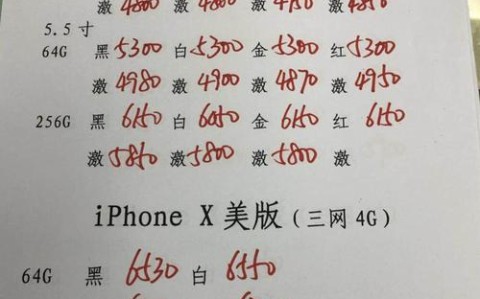 激4800 激4800 激4750 激4850
5.5寸
64G 黑5300 白5300 金5300 红5300
激4980 激4900 激4870 激4950
256G 黑6150 白6050 金6150 红6150
激5850 激5800 激5800 激
iPhone X美版(三网4G)
64G 黑 6530 白 6550